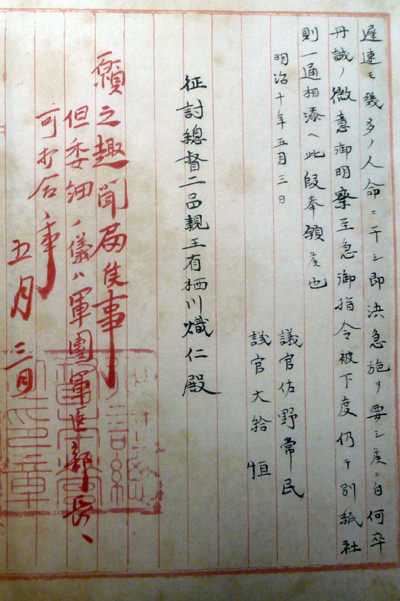 遅速モ幾多ノ人命ニ干シ即決急施ヲ要シ候ニ自何卒
丹誠ノ微意御明察至急御指令被下度仍テ別紙社
則一通相添ヘ此段奉願候也
明治十年五月三日
議官佐野常民
議官大給恒
征討總督二品親王有栖川熾仁殿
願之趣聞届候事
但委細ノ儀ハ軍團軍医部長ヘ
可打合事
五月三日